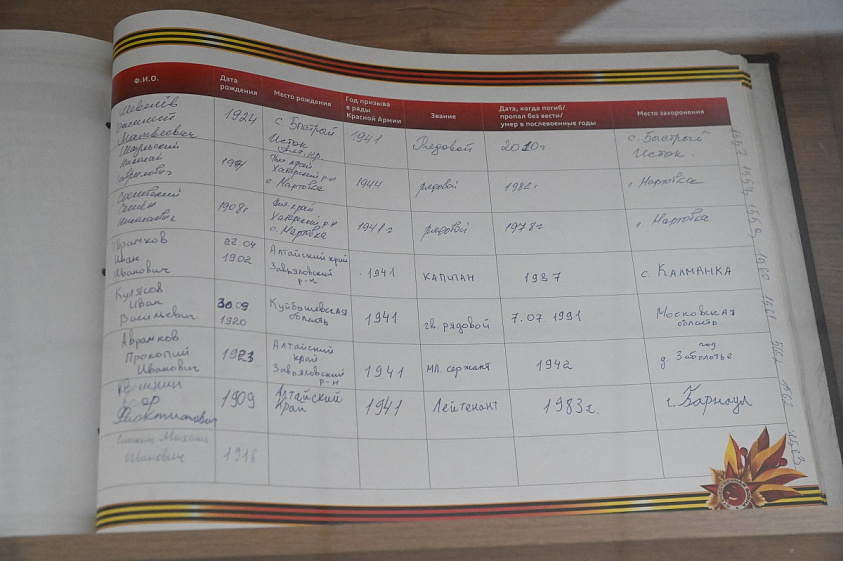 Ф.И.О.
Дата
рождения
Место рождения
Год призыва
в ряды
Красной Армии
Звание
Дата, когда погиб/
пропал без вести/
умер в послевоенные годы
Место захоронения
Матвеевич
1924
с. Быстрый
Исток
1941
Рядовой
2010г
с. Быстрый
Исток.
край
с Мартовка
1944
рядовой
1982г
с Мартовка
1908г
край
с. Мартовка
1941г
рядовой
1978г
с Мартовка
Абрамков
Иван
Иванович
22 04
1902
Алтайский край
Завьяловский
р-н
1941
КАПИТАН
1987
с. КАЛМАНКА
Кулясов
Иван
Васильевич
30 09
1920
Куйбышевская
область
1941
гв. рядовой
7.07.1991
Московская
область
Абрамков
Прокопий
Иванович
1923
Алтайский
край
Завьяловский
р-н
1941
мл. сержант
1942
под
д. Заболотье
1909
Алтайский
Край
1941
Лейтенант
1983г.
г. Барнаул
Михаил
Иванович
1918